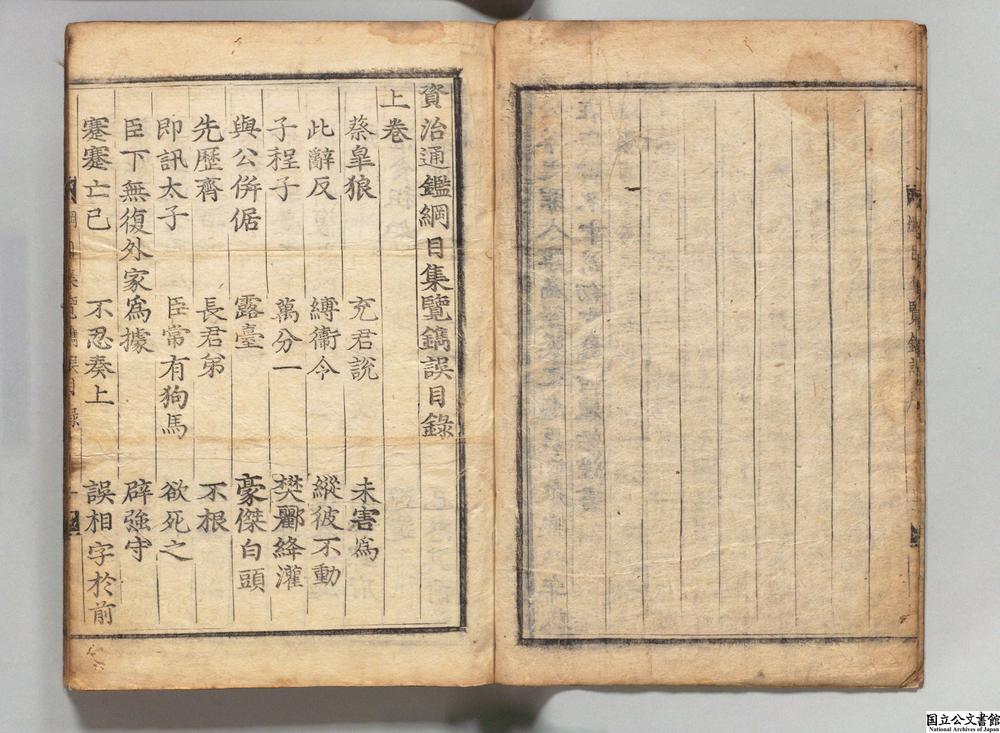 資治通鑑綱目集覽鐫誤目錄
上卷
蔡皐狼 充君說 未害爲
此辭反 縛衞令 縱彼不動
子程子 萬分一 樊酈絳灌
與公併倨 露臺 豪傑白頭
先歷齊 長君弟 不根
即訊太子 臣常有狗馬 欲死之
臣下無復外家爲據 辟強守
蹇蹇亡已 不忍奏上 誤相字於前
国立公文書館
National Archives of Japan